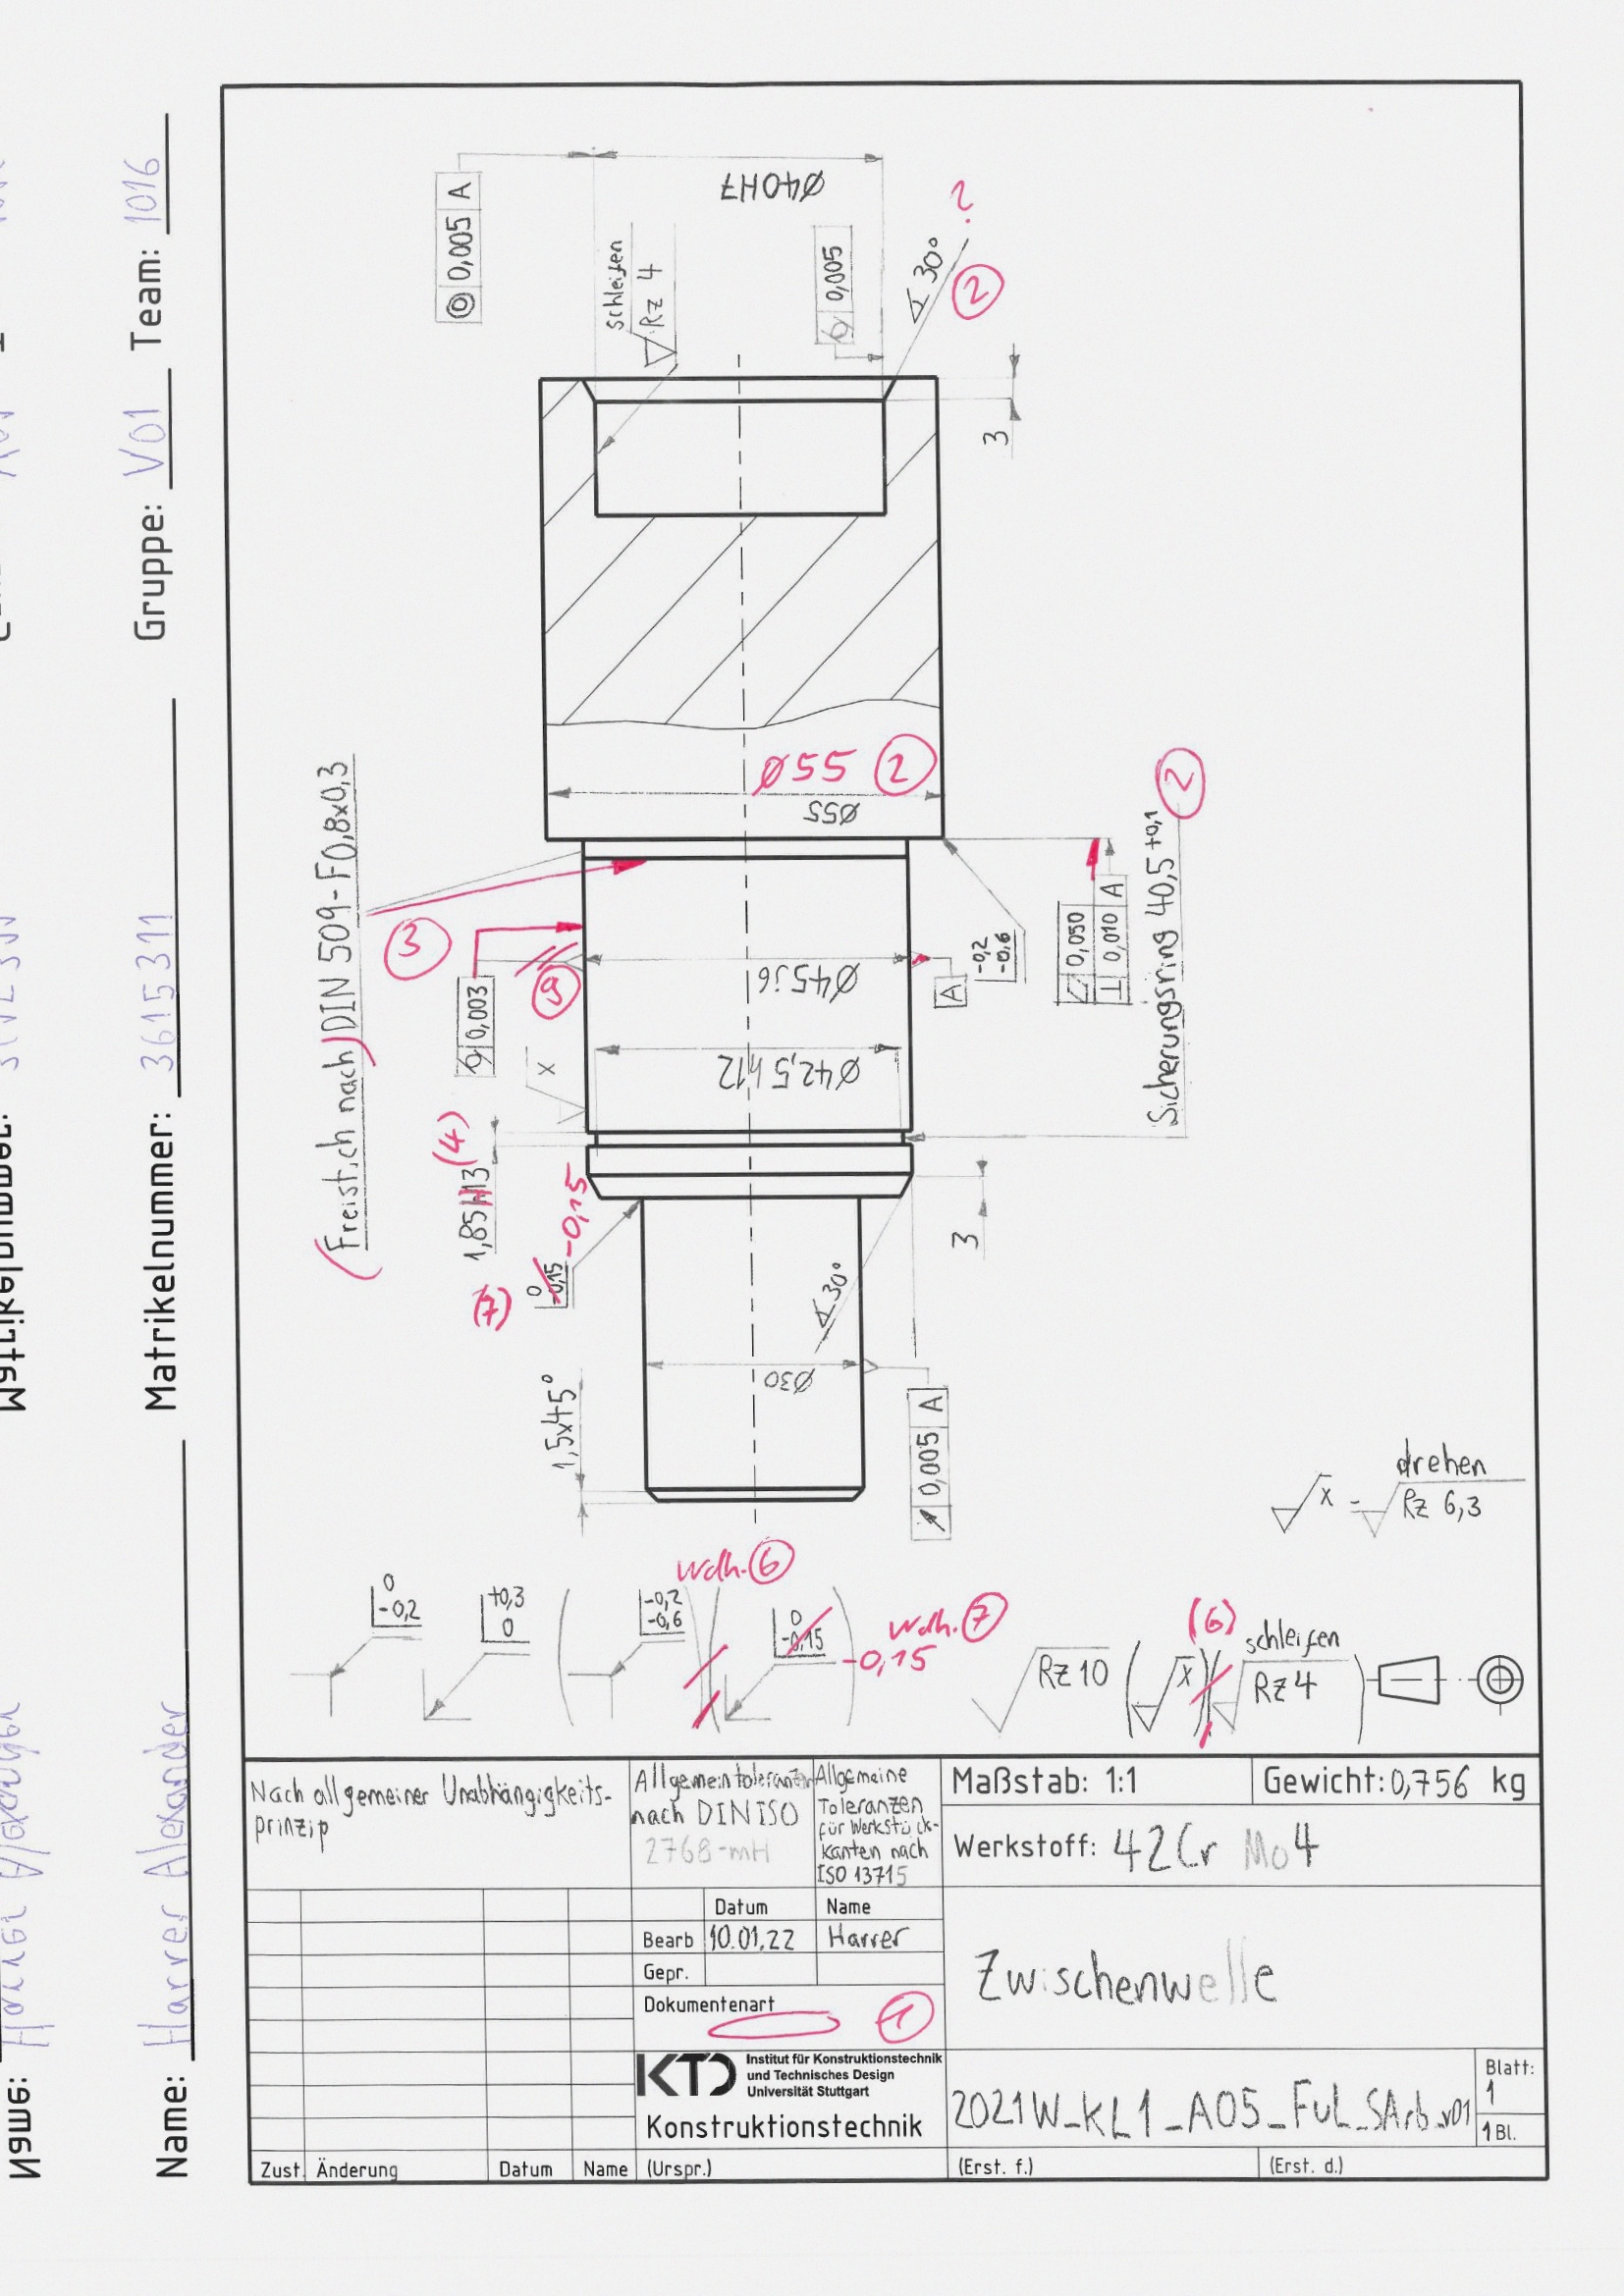 Name: Harrer Alexander
Matrikelnummer: 3615311
Gruppe: V01
Team: 1016
◎ 0,005 A
Ø40H7
schleifen
Rz 4
0,005
∢ 30°
?
2
3
Ø55 2
Ø55
Freistich nach DIN 509-F0,8x0,3
3
0,003
9
Ø45j6
A
-0,2
-0,6
0,050
⊥ 0,010 A
Sicherungsring 40,5 +0,1
2
x
Ø42,5 h12
(4)
1,85H13
0
-0,15
-0,15
(7)
3
∢ 30°
Ø30
1,5x45°
↗ 0,005 A
x = drehen
Rz 6,3
0
-0,2
+0,3
0
-0,2
-0,6
wdh. 6
0
-0,15
-0,15
wdh. 7
Rz 10
x
(6)
schleifen
Rz 4
Nach allgemeiner Unabhängigkeits-
prinzip
Allgemeintoleranzen
nach DIN ISO
2768-mH
Allgemeine
Toleranzen
für Werkstück-
kanten nach
ISO 13715
Maßstab: 1:1
Gewicht: 0,756 kg
Werkstoff: 42Cr Mo4
Datum Name
Bearb 10.01.22 Harrer
Gepr.
Dokumentenart
1
Zwischenwelle
KTD Institut für Konstruktionstechnik
und Technisches Design
Universität Stuttgart
Konstruktionstechnik
2021W_KL1_A05_FuL_SArb_v01
Blatt:
1
1 Bl.
Zust. Änderung Datum Name (Urspr.) (Erst. f.) (Erst. d.)